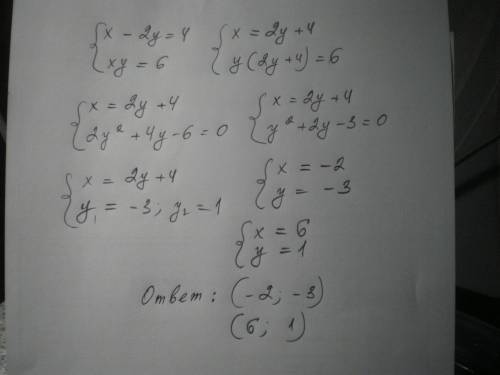 {x - 2y = 4
xy = 6
{x = 2y + 4
y(2y+4) = 6
{x = 2y + 4
2y² + 4y - 6 = 0
{x = 2y + 4
y² + 2y - 3 = 0
{x = 2y + 4
y₁ = -3; y₂ = 1
{x = -2
y = -3
{x = 6
y = 1
Ответ: (-2; -3)
(6; 1)